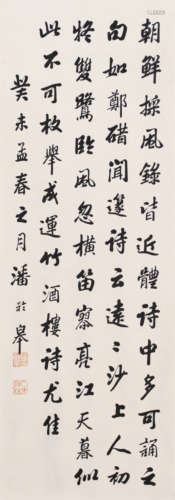 朝鮮採風錄皆近體詩中多可誦之
句如鄭碏聞詩云遠〻沙上人初
雙鷺臨風忽橫笛寥亮江天暮似
此不可枚舉成運竹酒樓詩尤佳
癸未孟春之月潘皋